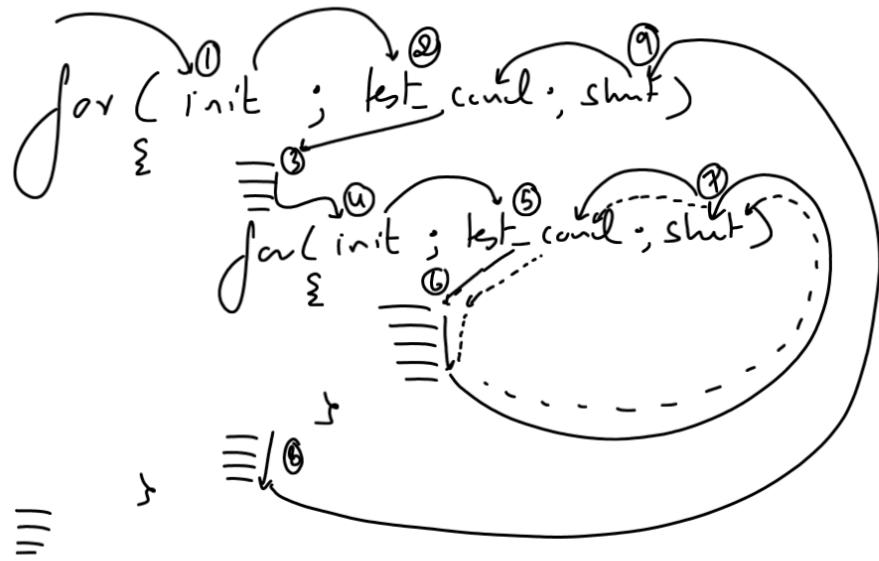 ① ② ⑨
for ( init ; test_cond ; stmt )
{
③
④ ⑤ ⑦
for ( init ; test_cond ; stmt )
{
⑥
}
⑧
}